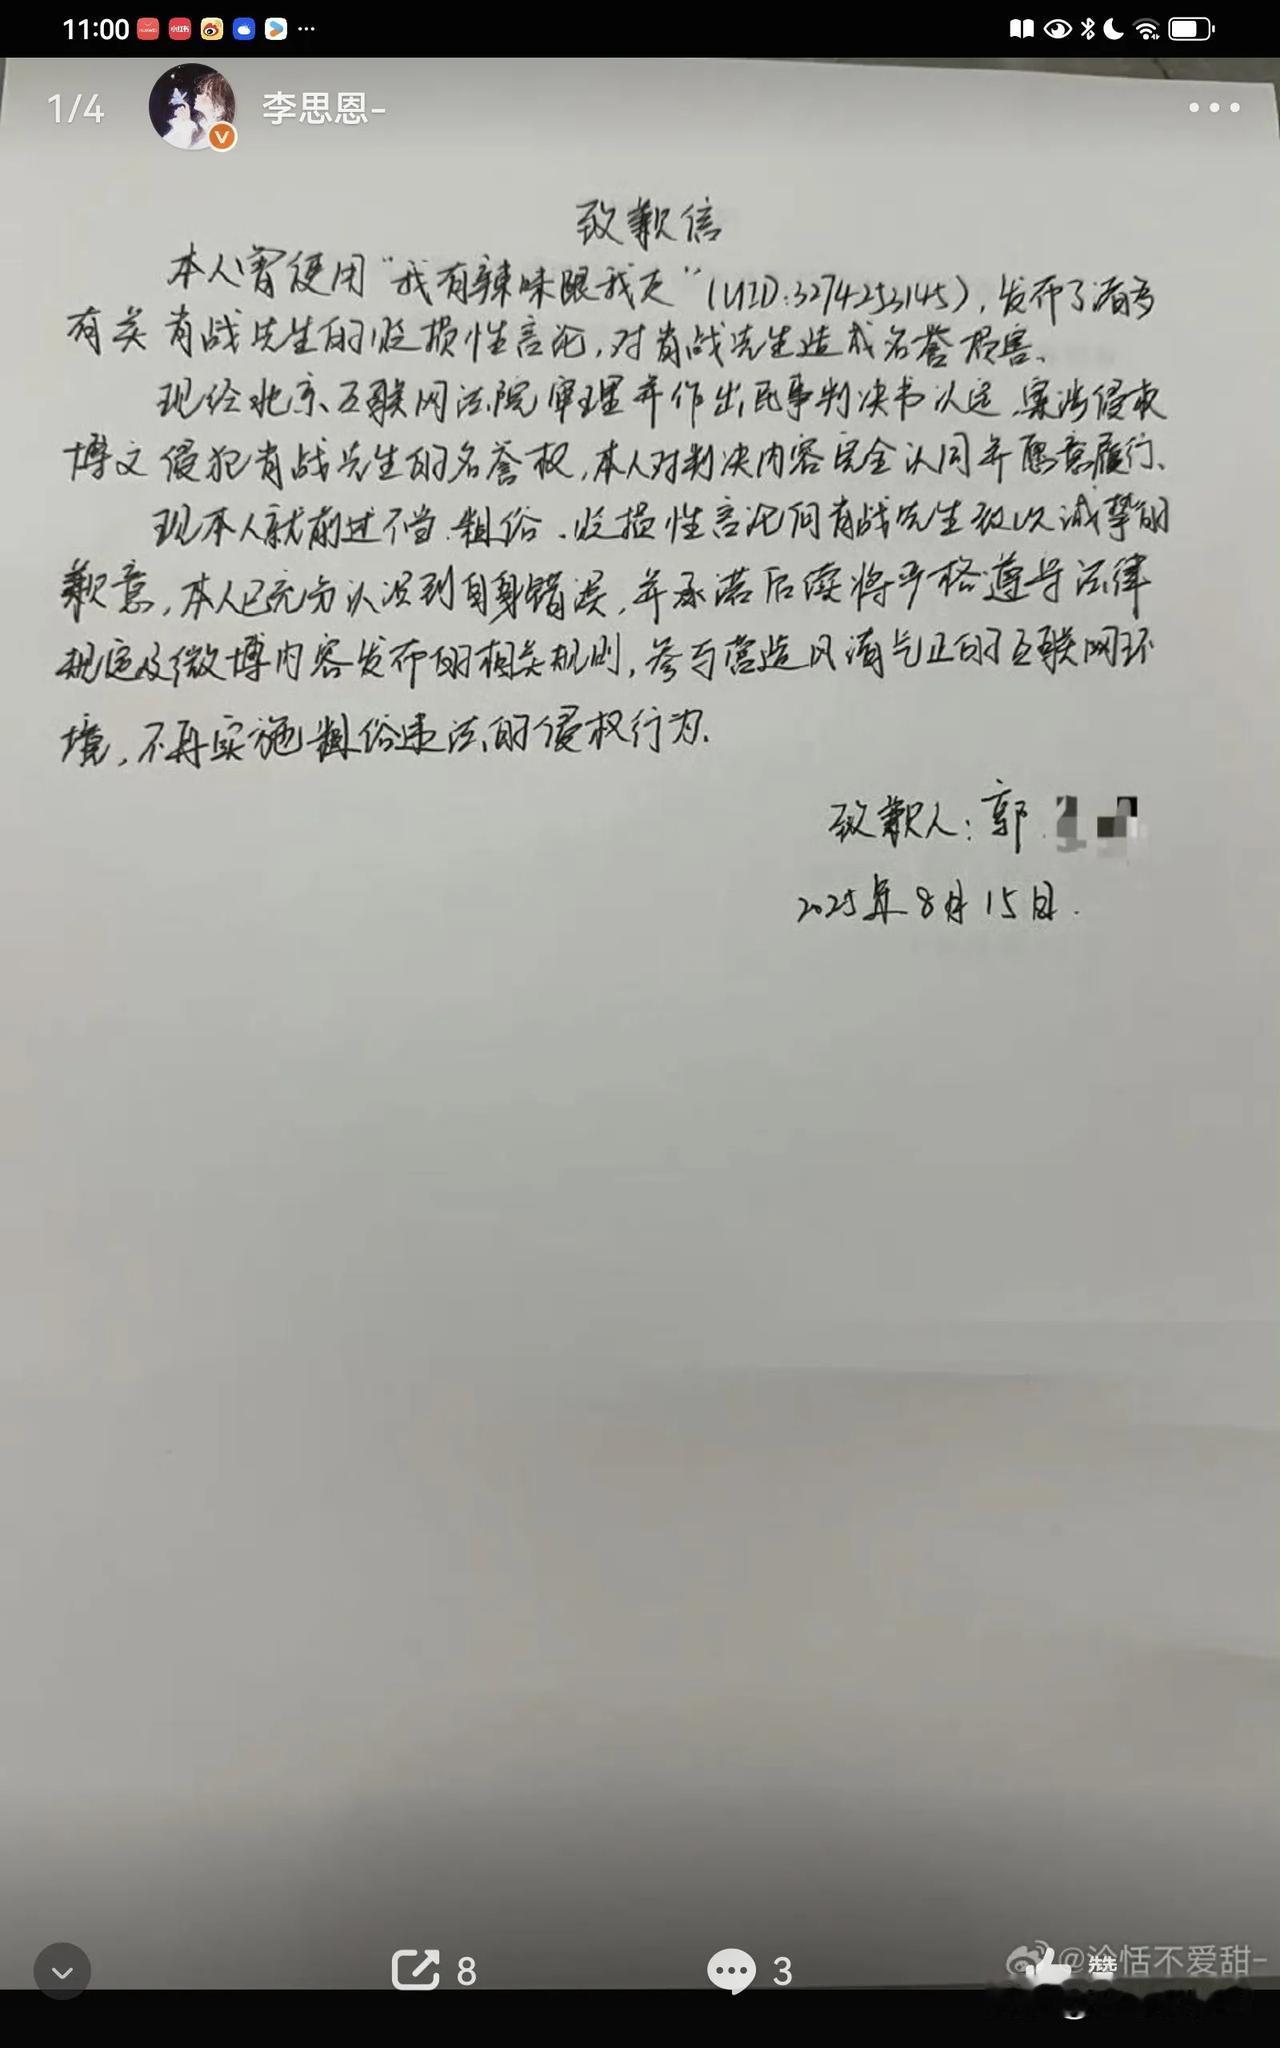 11:00
1/4 李思恩-
致歉信
本人曾使用“我有辣味跟我走”(UID:3274253145),发布了诸多
有关肖战先生的贬损性言论,对肖战先生造成名誉损害.
现经北京互联网法院审理并作出民事判决书认定,案涉侵权
博文侵犯肖战先生的名誉权,本人对判决内容完全认同并愿意履行.
现本人就前述不当.粗俗.贬损性言论向肖战先生致以诚挚的
歉意,本人已充分认识到自身错误,并承诺后续将严格遵守法律
规定及微博内容发布的相关规则,参与营造风清气正的互联网环
境,不再实施粗俗违法的侵权行为.
致歉人:郭
2025年8月15日.
8 3 赞
@泠恬不爱甜-